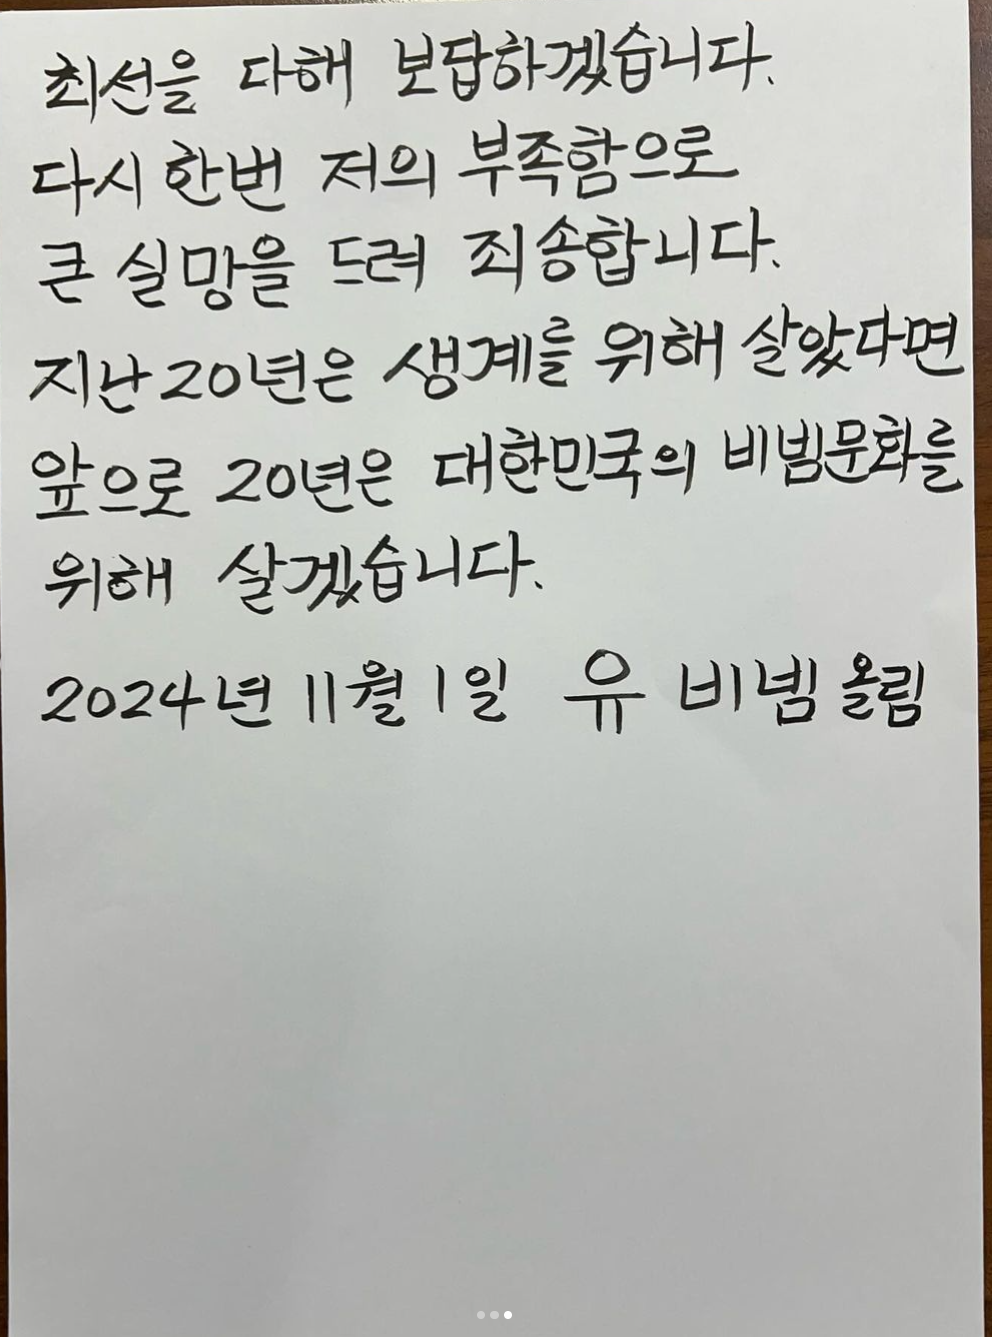 최선을 다해 보답하겠습니다.
다시 한번 저의 부족함으로
큰 실망을 드려 죄송합니다.
지난 20년은 생계를 위해 살았다면
앞으로 20년은 대한민국의 비빔문화를
위해 살겠습니다.
2024년 11월 1일 유 비빔 올림